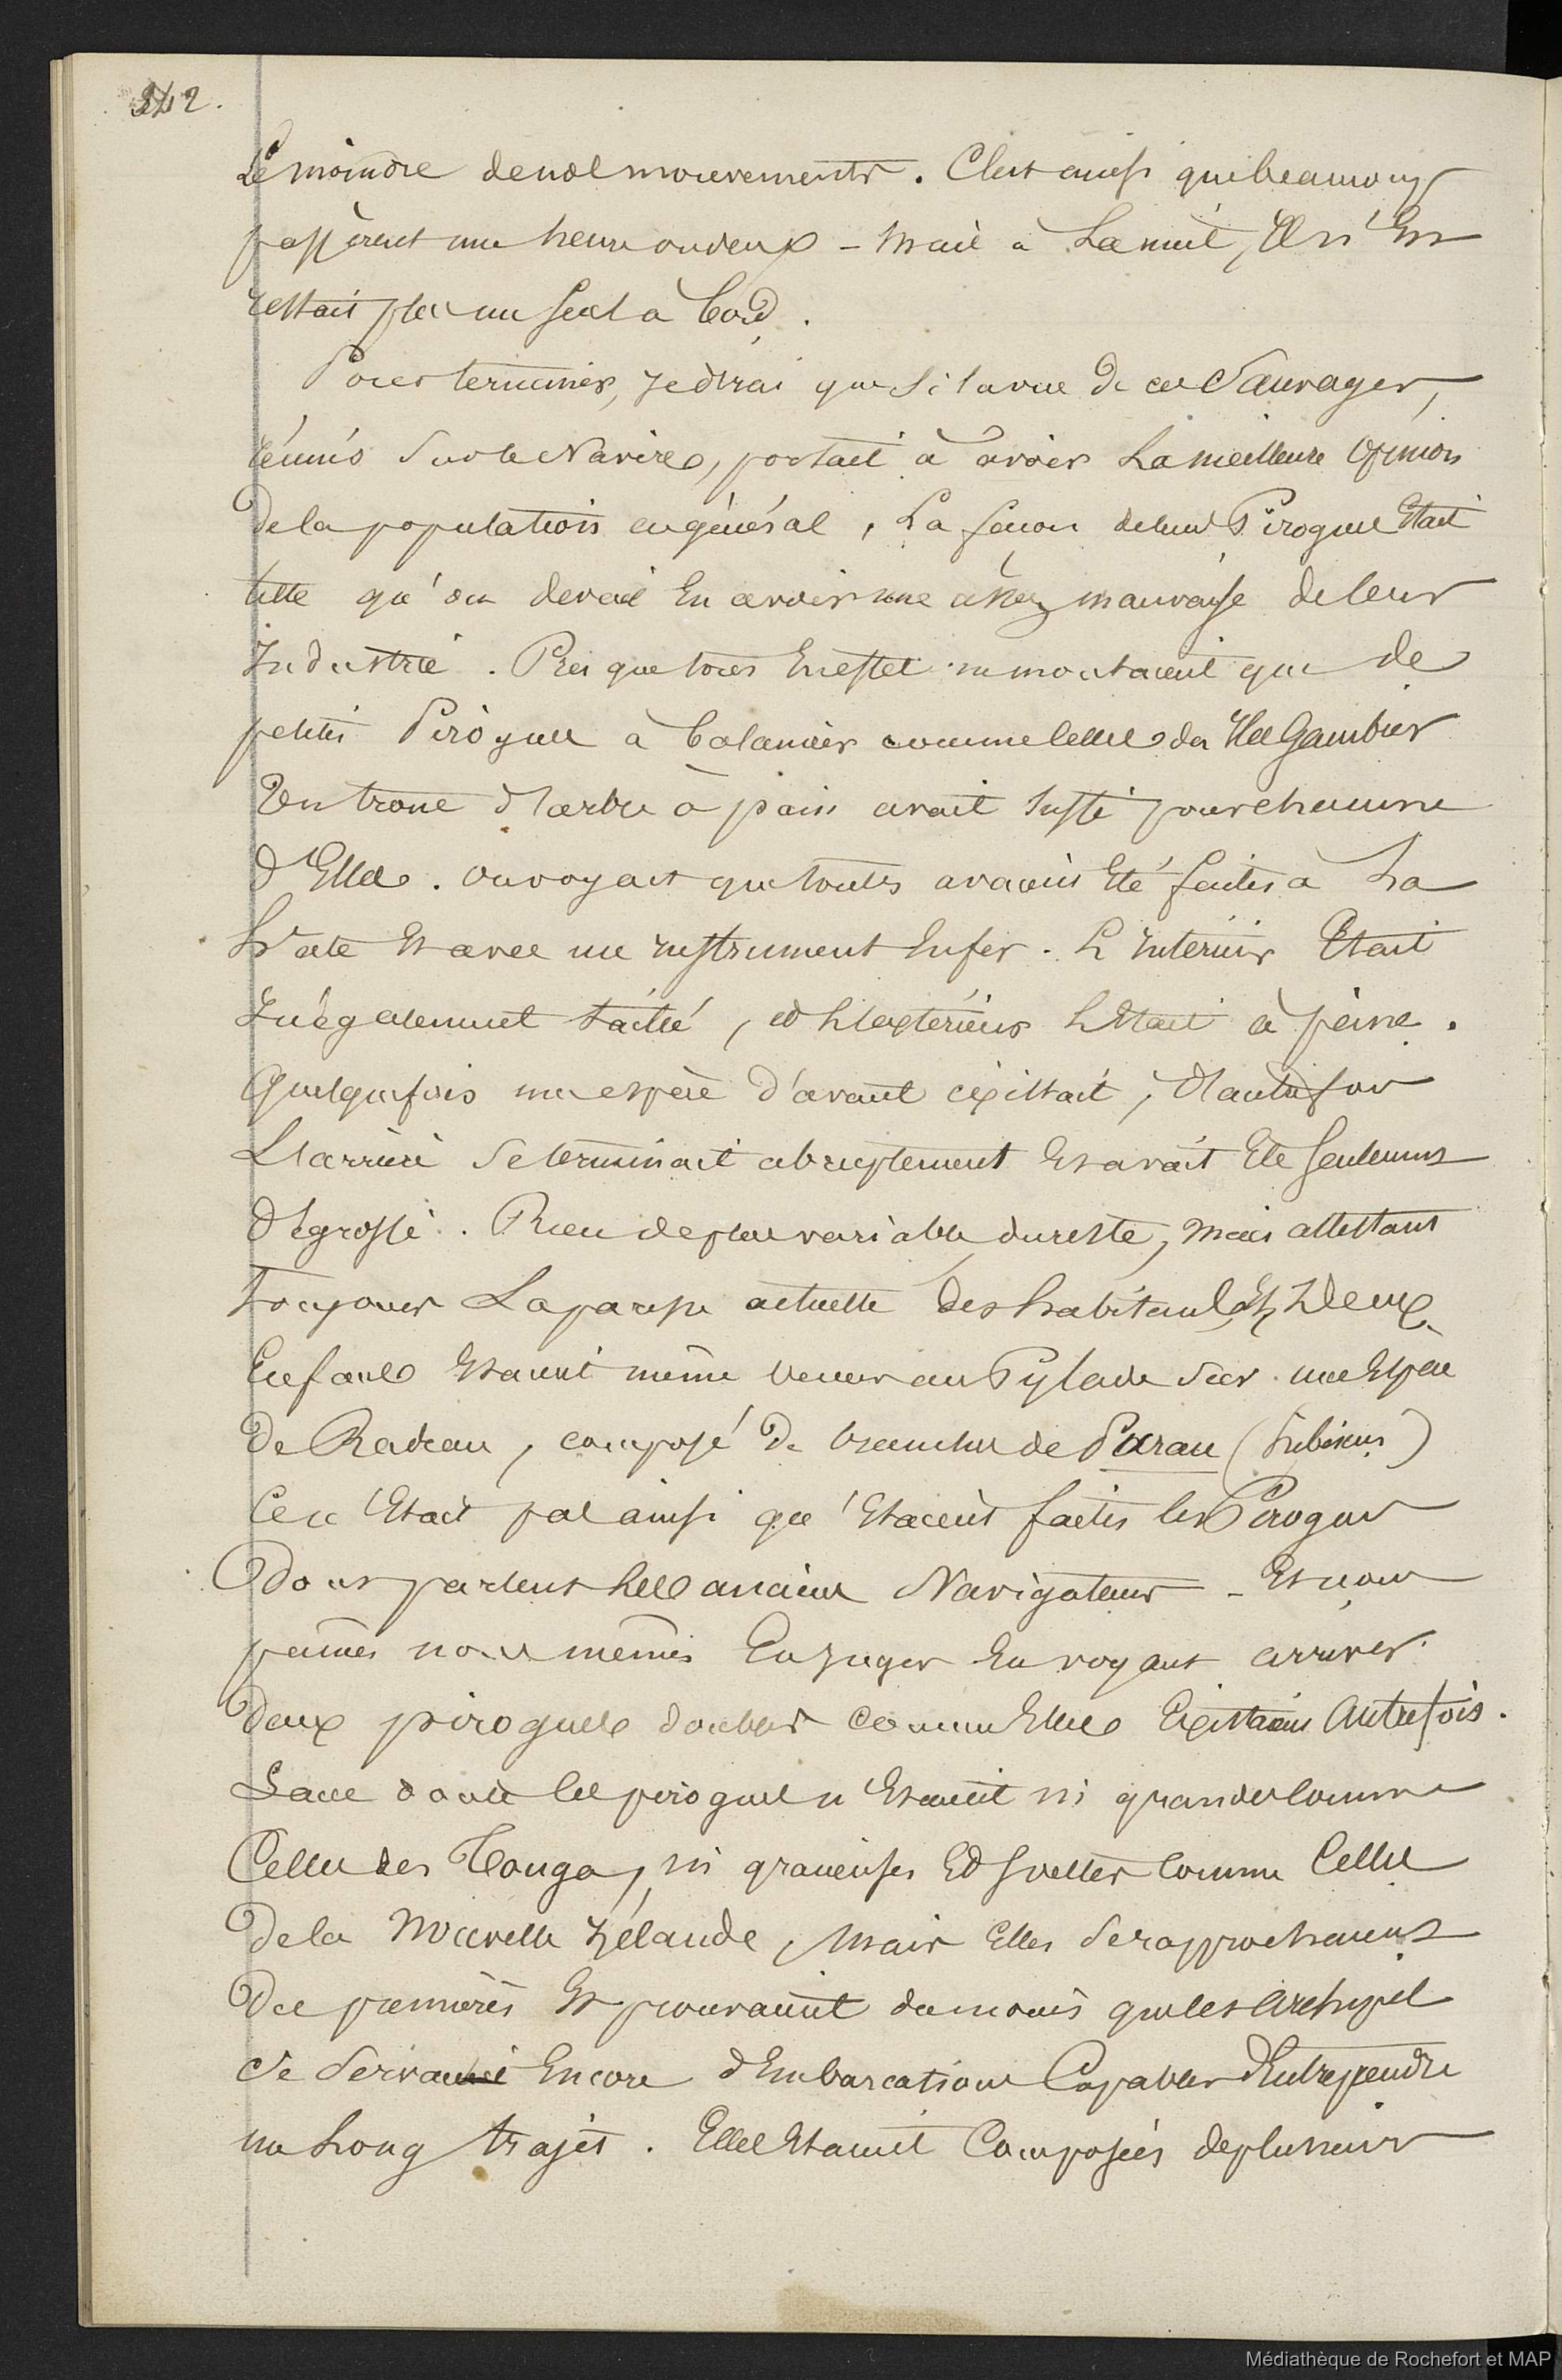 342.
Le moindre de nos mouvements. C'est ainsi que beaucoup
passèrent une heure ou deux - Mais à La nuit, Il n'En
restait pas un seul à bord.
Pour terminer, Je dirai que Si la vue de ces Sauvages,
réunis Sur le Navire, portait à avoir La meilleure Opinion
De la population en général, La façon de leurs Pirogues Etait
telle qu'on devait En avoir une assez mauvaise de leur
Industrie. Presque tous En effet ne montaient que de
petites Pirogues à balancier comme celles des Iles Gambier
Un tronc d'arbre à pain avait suffi pour chacune
d'Elles. On voyait que toutes avaient Eté faites à La
Hâte Et avec un Instrument En fer. L'Intérieur Etait
Inégalement taillé, et L'extérieur L'Etait à peine.
Quelquefois une espèce d'avant existait, D'autrefois
L'arrière Se terminait abruptement Et avait Eté Seulement
dégrossi. Rien de plus variable du reste, mais attestant
Toujours La paresse actuelle des habitants, Et Deux
Enfants Etaient même venus au Pylade Sur une Espèce
De Radeau, composé De branches de Purau (hibiscus)
Ce n'Etait pas ainsi qu'Etaient faites les Pirogues
Dont parlent Les anciens Navigateurs - Et nous
pûmes nous mêmes En Juger En voyant arriver
Deux pirogues doubles comme Elles Existaient Autrefois.
Sans doute les pirogues n'Etaient ni grandes comme
Celles des Tonga, ni gracieuses Et Sveltes comme Celles
De la Nouvelle Zélande, Mais Elles Se rapprochaient
Des premières Et prouvaient du moins que les Archipel
Se Servaient Encore d'Embarcations Capables d'Entreprendre
un Long trajet. Elles Etaient Composées de plusieurs
Médiathèque de Rochefort et MAP